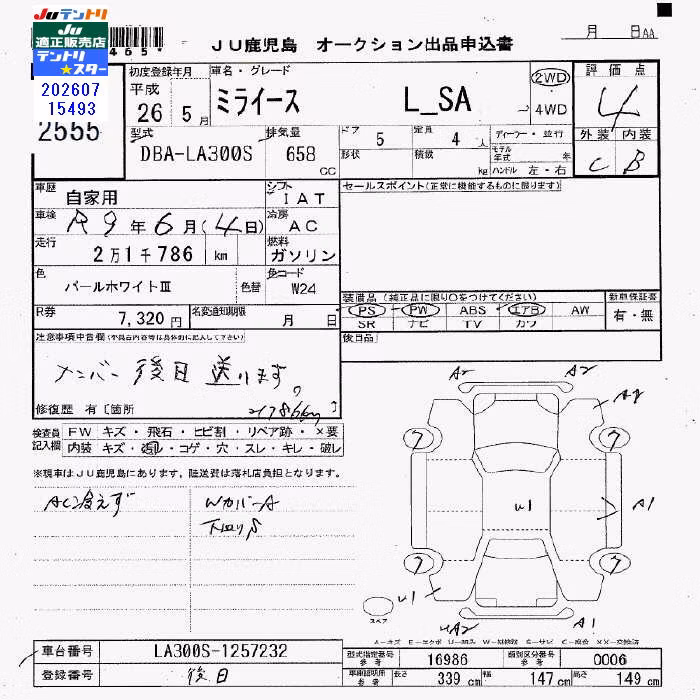 JUテントリ
JU
適正販売店
テントリ
★スター
202607
15493
2555
465
JU鹿児島 オークション出品申込書
月 日AA
初度登録年月
平成
26 5月
車名・グレード
ミライース L_SA
2WD
4WD
評価点
4
外装 内装
C B
型式
DBA-LA300S
排気量
658 cc
ドア 5
定員 4 人
形状
積載 kg
ディーラー・並行
モデル年式 年
ハンドル 左・右
車歴 自家用
シフト IAT
セールスポイント(正常に機能するものに限ります)
車検 R9年6月(4日)
冷房 AC
走行 2万1千786 km
燃料 ガソリン
色 パールホワイトⅢ 色替
色コード W24
R券 7,320円
名変通知期限 月 日
装備品(純正品に限り○をつけてください)
PS PW ABS エアB AW
SR ナビ TV カワ
新車保証書
有・無
注意事項申告欄(不具合内容等は具体的に記入して下さい)
後日品
ナンバー後日送ります。
修復歴 有〔箇所 〕
21786km
検査員記入欄
FW キズ・飛石・ヒビ割・リペア跡・×要
内装 キズ・汚レ・コゲ・穴・スレ・キレ・破レ
※現車はJU鹿児島にあります。陸送費は落札店負担となります。
AC冷えず
WカバーA
下回りS
A2 A2
A2
7 7
U1
A1
7 7
U1
スペア
UA2 A1
A-キズ E-エクボ U-凹ミ W-補修跡 S-サビ C-腐蝕 XX-交換済
車台番号 LA300S-1257232
登録番号 後日
型式指定番号 参考 16986
類別区分番号 参考 0006
車検証明用 参考 長さ 339 cm 幅 147 cm 高さ 149 cm